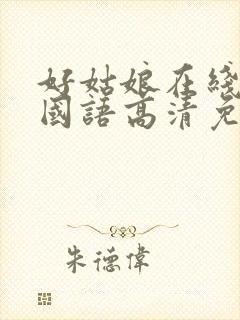 好姑娘在线
國語高清免
朱德偉